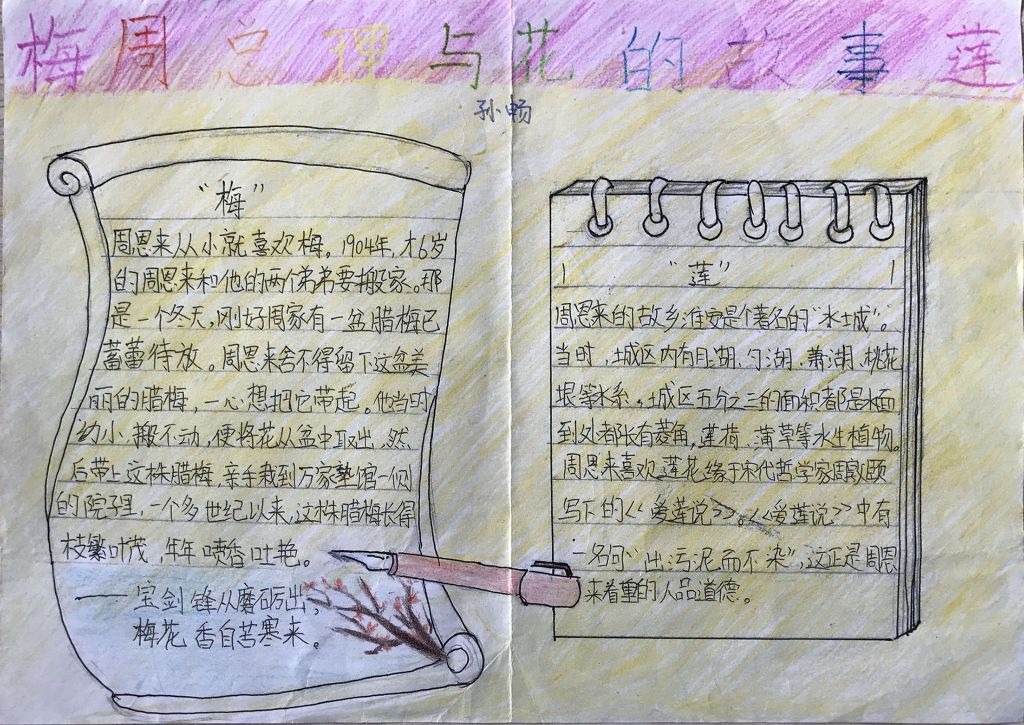 梅周总理与花的故事莲
孙畅
“梅”
周恩来从小就喜欢梅。1904年,才6岁
的周恩来和他的两个弟弟要搬家。那
是一个冬天,刚好周家有一盆腊梅已
蓄蕾待放。周恩来舍不得留下这盆美
丽的腊梅,一心想把它带起。他当时
幼小搬不动,便将花从盆中取出,然
后带上这株腊梅,亲手栽到万家塾馆一侧
的院子里,一个多世纪以来,这株腊梅长得
枝繁叶茂,年年喷香吐艳。
——宝剑锋从磨砺出,
梅花香自苦寒来。
“莲”
周恩来的故乡淮安是个著名的“水城”。
当时,城区内有月湖、勺湖、萧湖、桃花
垠等水系。城区五分之三的面积都是水面
到处都长有菱角,莲荷、蒲草等水生植物。
周恩来喜欢莲花缘于宋代哲学家周敦颐
写下的<<爱莲说>>。<<爱莲说>>中有
一名句“出污泥而不染”,这正是周恩
来着重的人品道德。